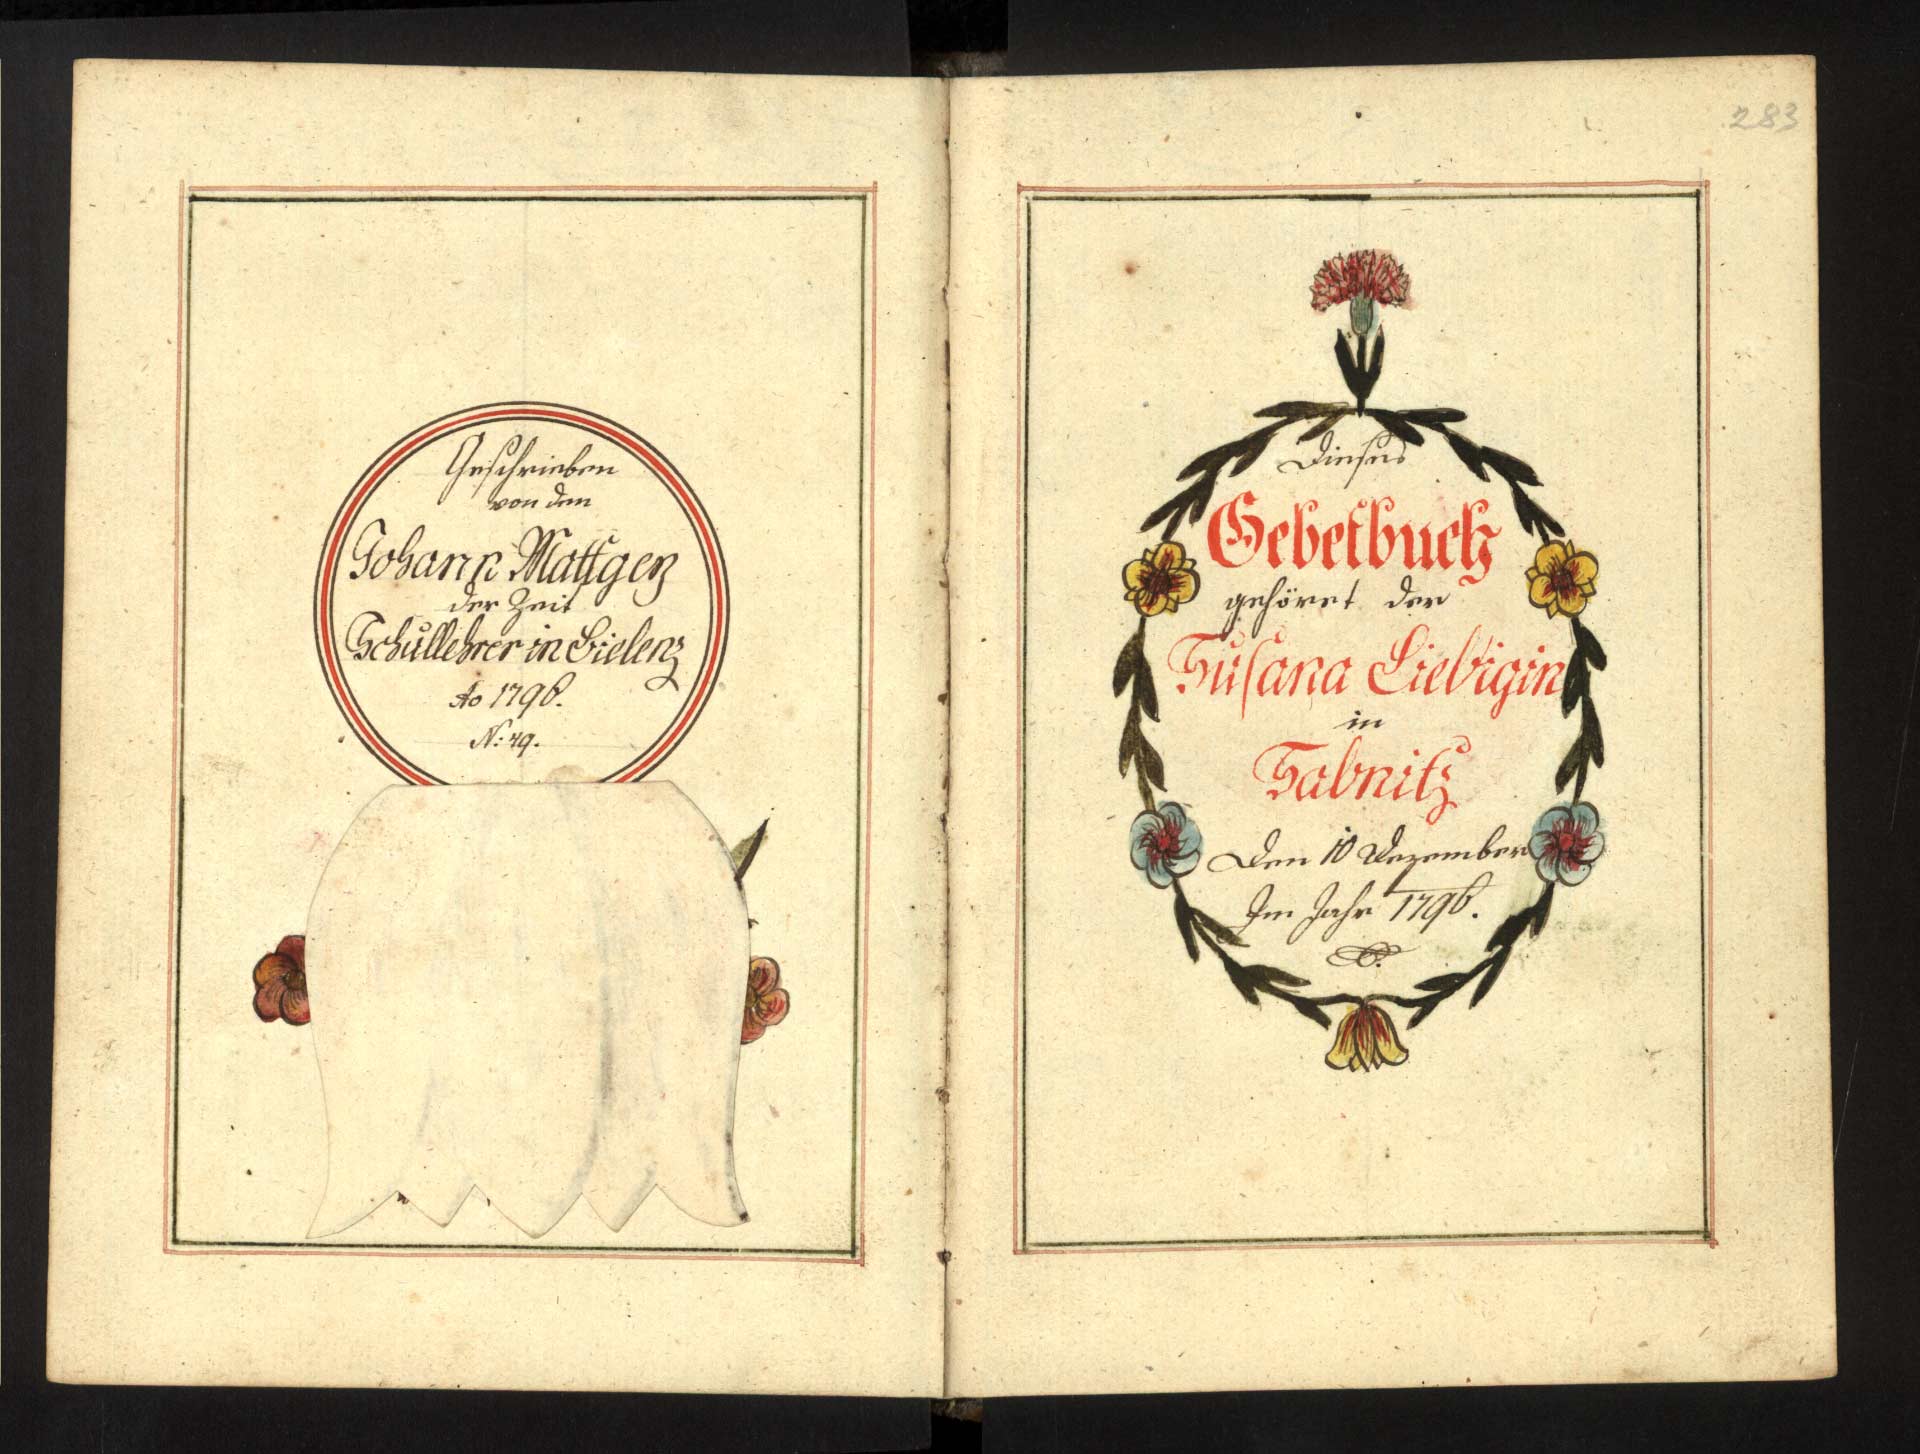 Geschrieben
von dem
Johann Mattgey
der Zeit
Schullehrer in Bielenz
Ao 1796.
N: 49.
283
Dieses
Gebetbuch
gehöret der
Susana Liebigin
in
Sabnitz
Den 10 Dezember
Im Jahr 1796.